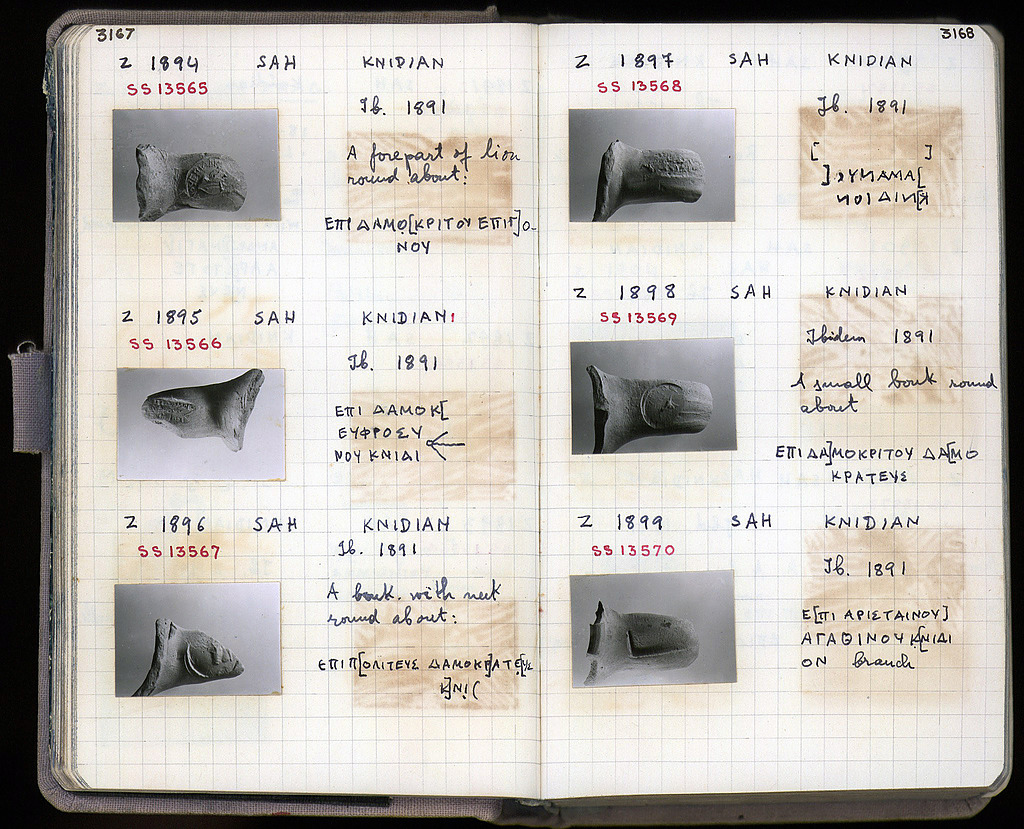 3167
Z 1894 SAH KNIDIAN
SS 13565
Ib. 1891
A forepart of lion
round about:
ΕΠΙ ΔΑΜΟ̣[ΚΡΙΤΟΥ ΕΠΙΓ]Ο-
ΝΟΥ
Z 1895 SAH KNIDIAN:
SS 13566
Ib. 1891
ΕΠΙ ΔΑΜΟΚ[
ΕΥΦΡΟΣΥ
ΝΟΥ ΚΝΙΔΙ
Z 1896 SAH KNIDIAN
SS 13567
Ib. 1891
A bouk. with neck
round about:
ΕΠΙ Π[ΟΛΙΤΕΥΣ ΔΑΜΟΚΡ]ΑΤΕ̣[ΥΣ
Κ]ΝΙ(
3168
Z 1897 SAH KNIDIAN
SS 13568
Ib. 1891
[ ]
]ΔΑΜΑ[
Κ]ΝΙΔΙΟΝ
Z 1898 SAH KNIDIAN
SS 13569
Ibidem 1891
A small bouk round
about
ΕΠΙ ΔΑ]ΜΟΚΡΙΤΟΥ ΔΑ[ΜΟ
ΚΡΑΤΕΥΣ
Z 1899 SAH KNIDIAN
SS 13570
Ib. 1891
Ε[ΠΙ ΑΡΙΣΤΑΙΝΟΥ]
ΑΓΑΘΙΝΟΥ Κ[ΝΙΔΙ
ΟΝ branch